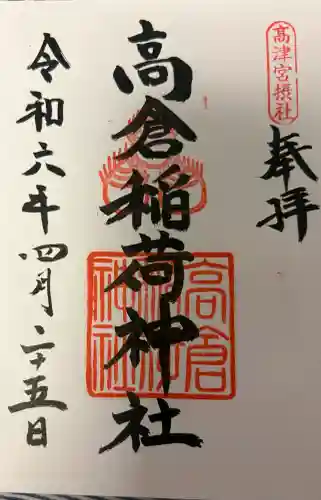 高津宮摂社
奉拝
高倉稲荷神社
高倉稲荷神社
令和六年四月二十五日